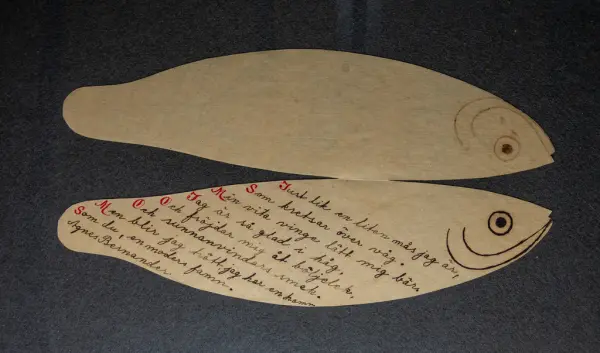 Just lik en liten mås jag är,
Som kretsar över våg.
Min vita vinge lätt mig bär,
Jag är så glad i håg,
Och fröjdar mig åt böljelek,
Och sunnanvindars smek.
Men blir jag trött, jag har en hamn
Som du en moders famn.
Agnes Bernander.